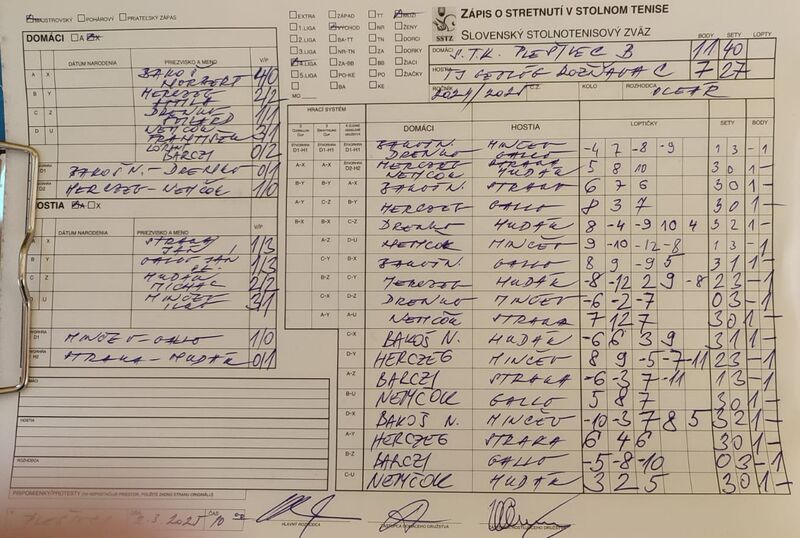 MAJSTROVSKÝ POHÁROVÝ PRIATEĽSKÝ ZÁPAS
DOMÁCI A X
DÁTUM NARODENIA PRIEZVISKO A MENO V/P
A X BAKOŠ NORBERT 4/0
B Y HERCZEG ATTILA 2/2
C Z DRENKO 1/1
D U NEMČOK FRANTIŠEK 3/1
BARCZI 0/2
D1 BAKOŠ N. - DRENKO 0/1
D2 HERCZEG - NEMČOK 1/0
HOSTIA A X
DÁTUM NARODENIA PRIEZVISKO A MENO V/P
A X STRAKA JÁN 1/3
B Y GALLO JÁN 1/3
C Z HUDÁK MICHAL 2/2
D U MINČEV 3/1
D1 MINČEV - GALLO 1/0
H2 STRAKA - HUDÁK 0/1
DOMÁCI
HOSTIA
ROZHODCA
PRIPOMIENKY/PROTESTY (AK NEPOSTAČUJE PRIESTOR, POUŽITE ZADNÚ STRANU ORIGINÁLU)
2.3.2025 ČAS 10
HLAVNÝ ROZHODCA
EXTRA ZÁPAD TT MUŽI
1.LIGA VÝCHOD NR ŽENY
2.LIGA BA-TT TN DORCI
3.LIGA NR-TN ZA DORKY
4.LIGA ZA-BB BB ŽIACI
5.LIGA PO-KE PO ŽIAČKY
BA KE
MO
SSTZ
ZÁPIS O STRETNUTÍ V STOLNOM TENISE
SLOVENSKÝ STOLNOTENISOVÝ ZVÄZ
BODY SETY LOPTY
DOMÁCI S.T.K. PLEŠIVEC B 11 40
HOSTIA TJ GEOLÓG ROŽŇAVA C 7 27
ROČNÍK 2024/2025 KOLO ROZHODCA
HRACÍ SYSTÉM
DOMÁCI HOSTIA LOPTIČKY SETY BODY
D1-H1 D1-H1 D1-H1 BAKOŠ N. DRENKO MINČEV GALLO -4 7 -8 -9 1 3 - 1
A-X A-X D2-H2 HERCZEG NEMČOK STRAKA HUDÁK 5 8 10 3 0 1 -
B-Y B-Y A-X BAKOŠ N. STRAKA 6 7 6 3 0 1 -
A-Y C-Z B-Y HERCZEG GALLO 8 3 7 3 0 1 -
B-X B-X C-Z DRENKO HUDÁK 8 -4 -9 10 4 3 2 1 -
A-Z D-U NEMČOK MINČEV 9 -10 -12 -8 1 3 - 1
C-Y B-X BAKOŠ N. GALLO 8 9 -9 5 3 1 1 -
B-Z C-Y HERCZEG HUDÁK -8 -12 2 9 -8 2 3 - 1
C-X D-Z DRENKO MINČEV -6 -2 -7 0 3 - 1
A-Y A-U NEMČOK STRAKA 7 12 7 3 0 1 -
C-X BAKOŠ N. HUDÁK -6 6 3 9 3 1 1 -
D-Y HERCZEG MINČEV 8 9 -5 -7 -11 2 3 - 1
A-Z BARCZI STRAKA -6 -3 7 -11 1 3 - 1
B-U NEMČOK GALLO 5 8 7 3 0 1 -
D-X BAKOŠ N. MINČEV -10 -3 7 8 5 3 2 1 -
A-Y HERCZEG STRAKA 6 4 6 3 0 1 -
B-Z BARCZI GALLO -5 -8 -10 0 3 - 1
C-U NEMČOK HUDÁK 3 2 5 3 0 1 -